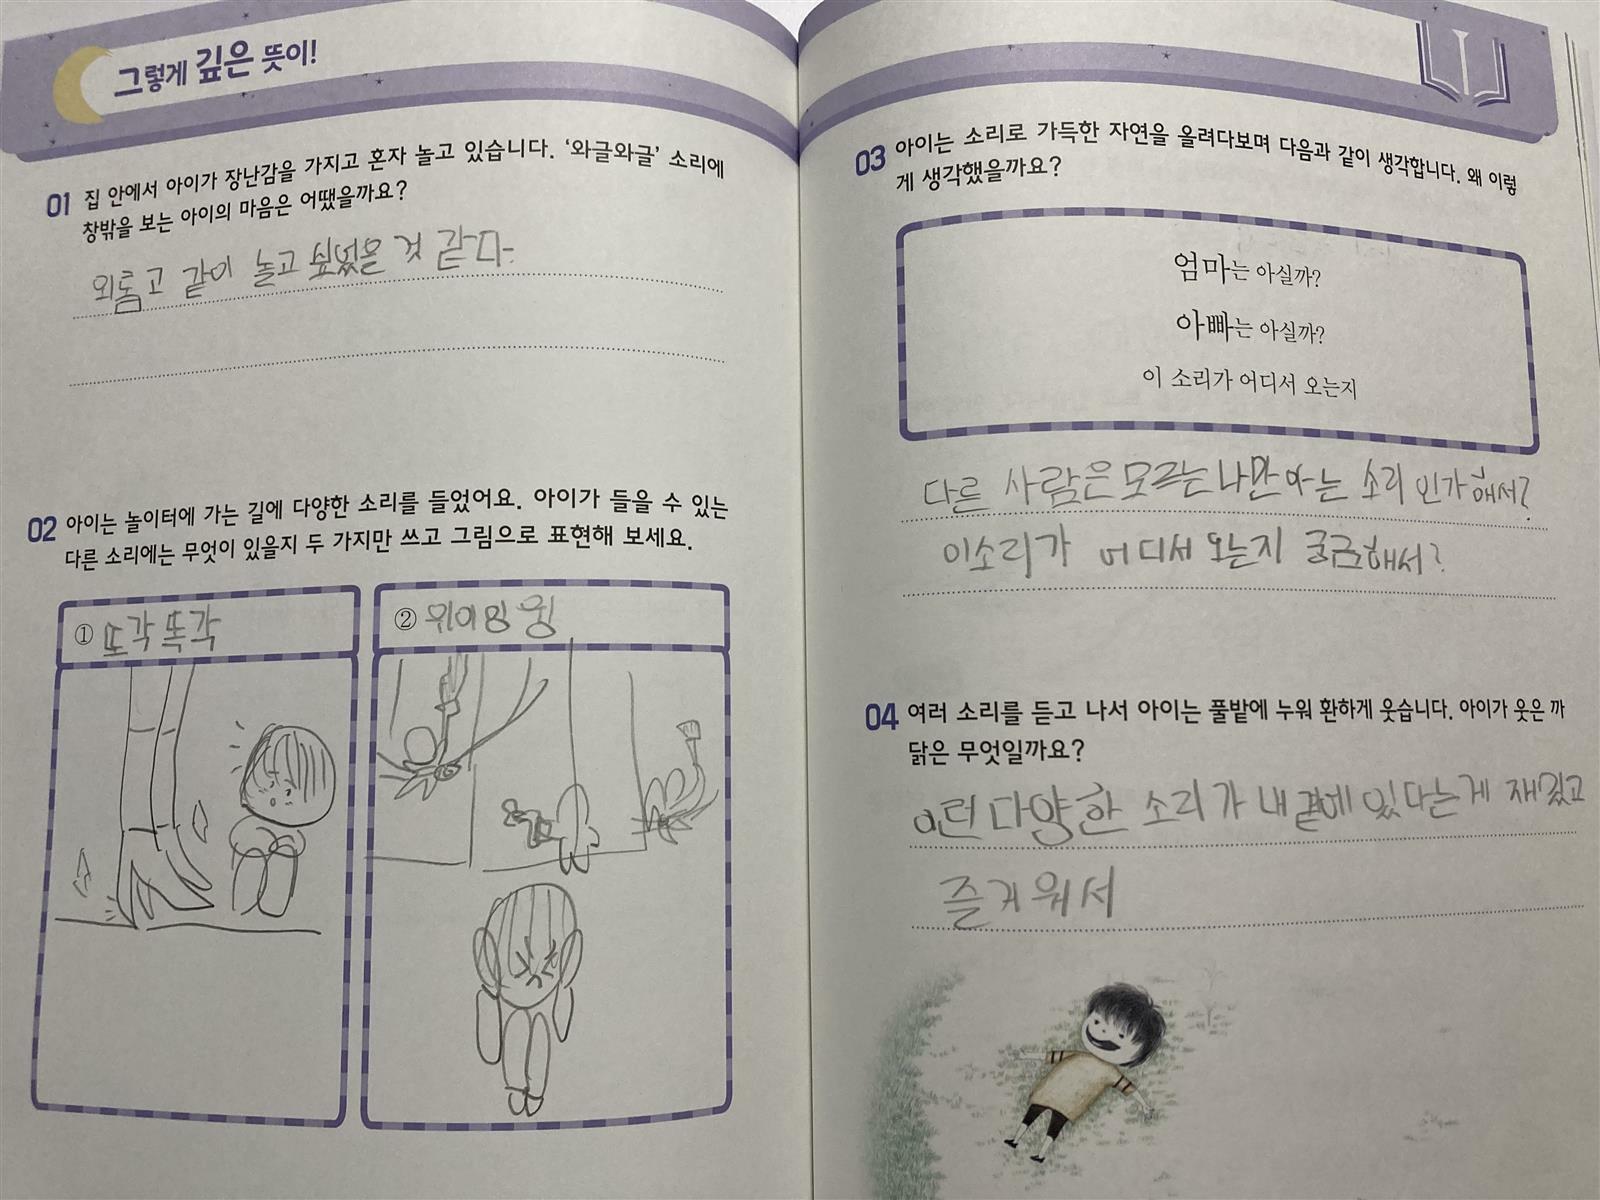 그렇게 깊은 뜻이!
01 집 안에서 아이가 장난감을 가지고 혼자 놀고 있습니다. '와글와글' 소리에
창밖을 보는 아이의 마음은 어땠을까요?
외롭고 같이 놀고 싶었을 것 같다.
02 아이는 놀이터에 가는 길에 다양한 소리를 들었어요. 아이가 들을 수 있는
다른 소리에는 무엇이 있을지 두 가지만 쓰고 그림으로 표현해 보세요.
① 또각똑각
② 위이잉윙
03 아이는 소리로 가득한 자연을 올려다보며 다음과 같이 생각합니다. 왜 이렇
게 생각했을까요?
엄마는 아실까?
아빠는 아실까?
이 소리가 어디서 오는지
다른 사람은 모르는 나만 아는 소리 인가 해서?
이소리가 어디서 오는지 궁금해서?
04 여러 소리를 듣고 나서 아이는 풀밭에 누워 환하게 웃습니다. 아이가 웃은 까
닭은 무엇일까요?
이런 다양한 소리가 내 곁에 있다는게 재밌고
즐거워서